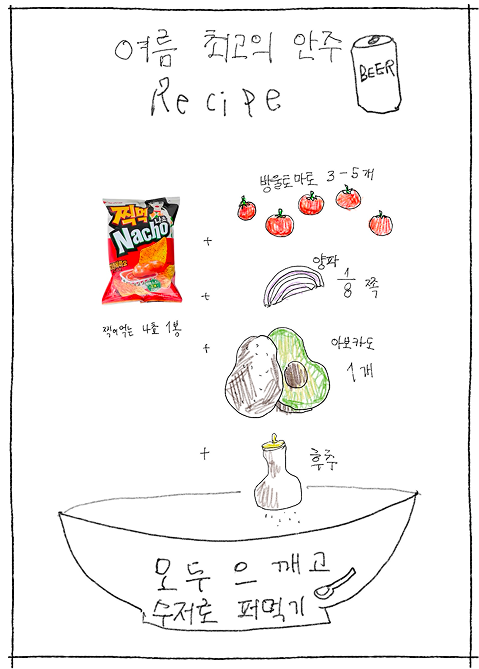 여름 최고의 안주
Recipe
BEER
방울토마토 3-5개
찍먹
나쵸
Nacho
+
양파 1/8 쪽
+
찍어먹는 나쵸 1봉
+
아보카도
1개
+
후추
모두 으깨고
수저로 퍼먹기